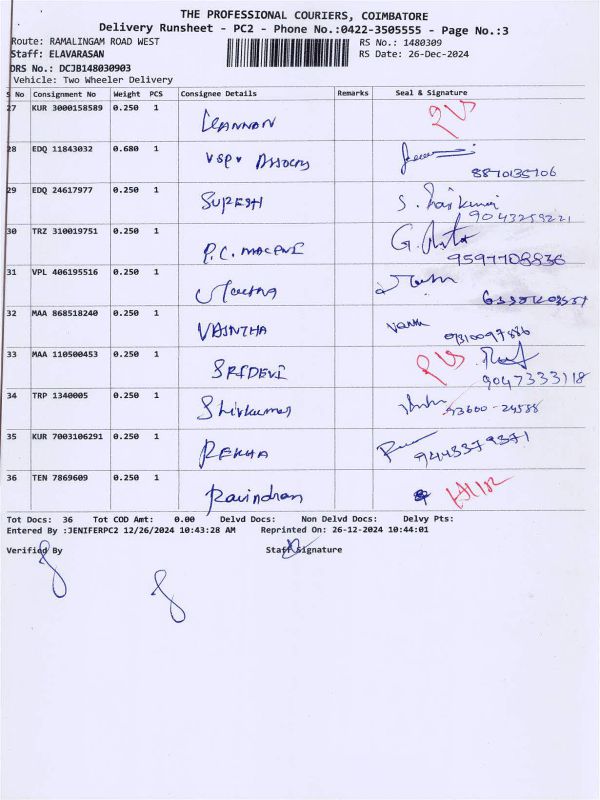 THE PROFESSIONAL COURIERS, COIMBATORE
Delivery Runsheet - PC2 - Phone No.:0422-3505555 - Page No.:3
Route: RAMALINGAM ROAD WEST RS No.: 1480309
Staff: ELAVARASAN RS Date: 26-Dec-2024
DRS No.: DCJB148030903
Vehicle: Two Wheeler Delivery
S No Consignment No Weight PCS Consignee Details Remarks Seal & Signature
27 KUR 3000158589 0.250 1 KANNAN
28 EDQ 11843032 0.680 1 VSPV
29 EDQ 24617977 0.250 1 SURESH S.
30 TRZ 310019751 0.250 1 P.C. 9597708836
31 VPL 406195516 0.250 1
32 MAA 868518240 0.250 1 VASNTHA
33 MAA 110500453 0.250 1 SRIDEVI 9047333118
34 TRP 1340005 0.250 1 Shivkumar 93600-24588
35 KUR 7003106291 0.250 1 REKHA 9443379371
36 TEN 7869609 0.250 1 Ravindran
Tot Docs: 36 Tot COD Amt: 0.00 Delvd Docs: Non Delvd Docs: Delvy Pts:
Entered By :JENIFERPC2 12/26/2024 10:43:28 AM Reprinted On: 26-12-2024 10:44:01
Verified By Staff Signature